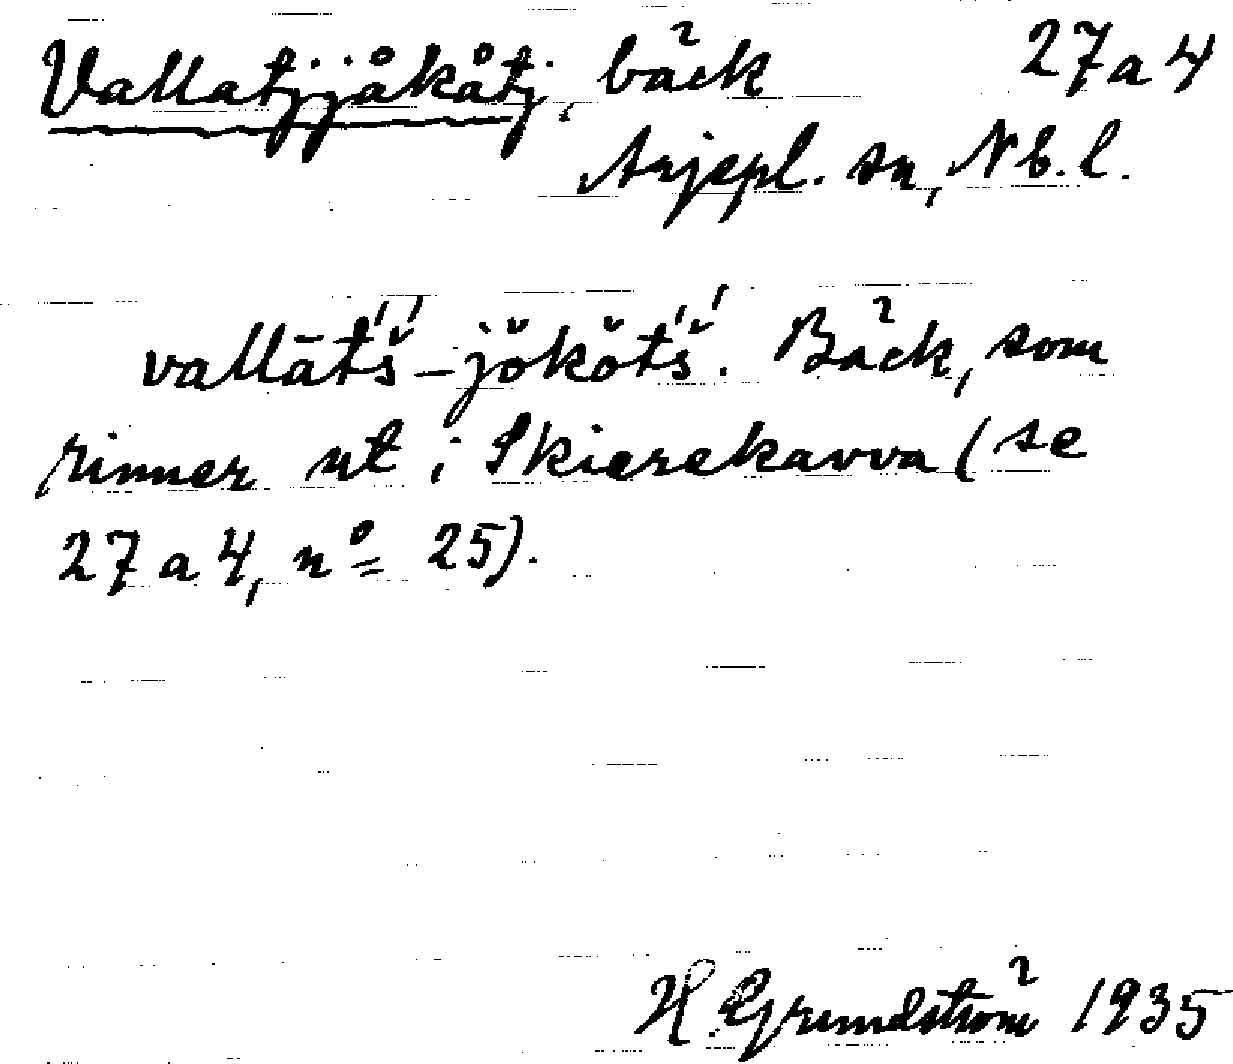 Vallatjjåkåtj, bäck 27a4
Arjepl. sn, Nb. l.
vallāt́š́-jŏkŏt́š́. Bäck, som
rinner ut i Skierekavva (se
27a4, nº 25).
H Grundström 1935